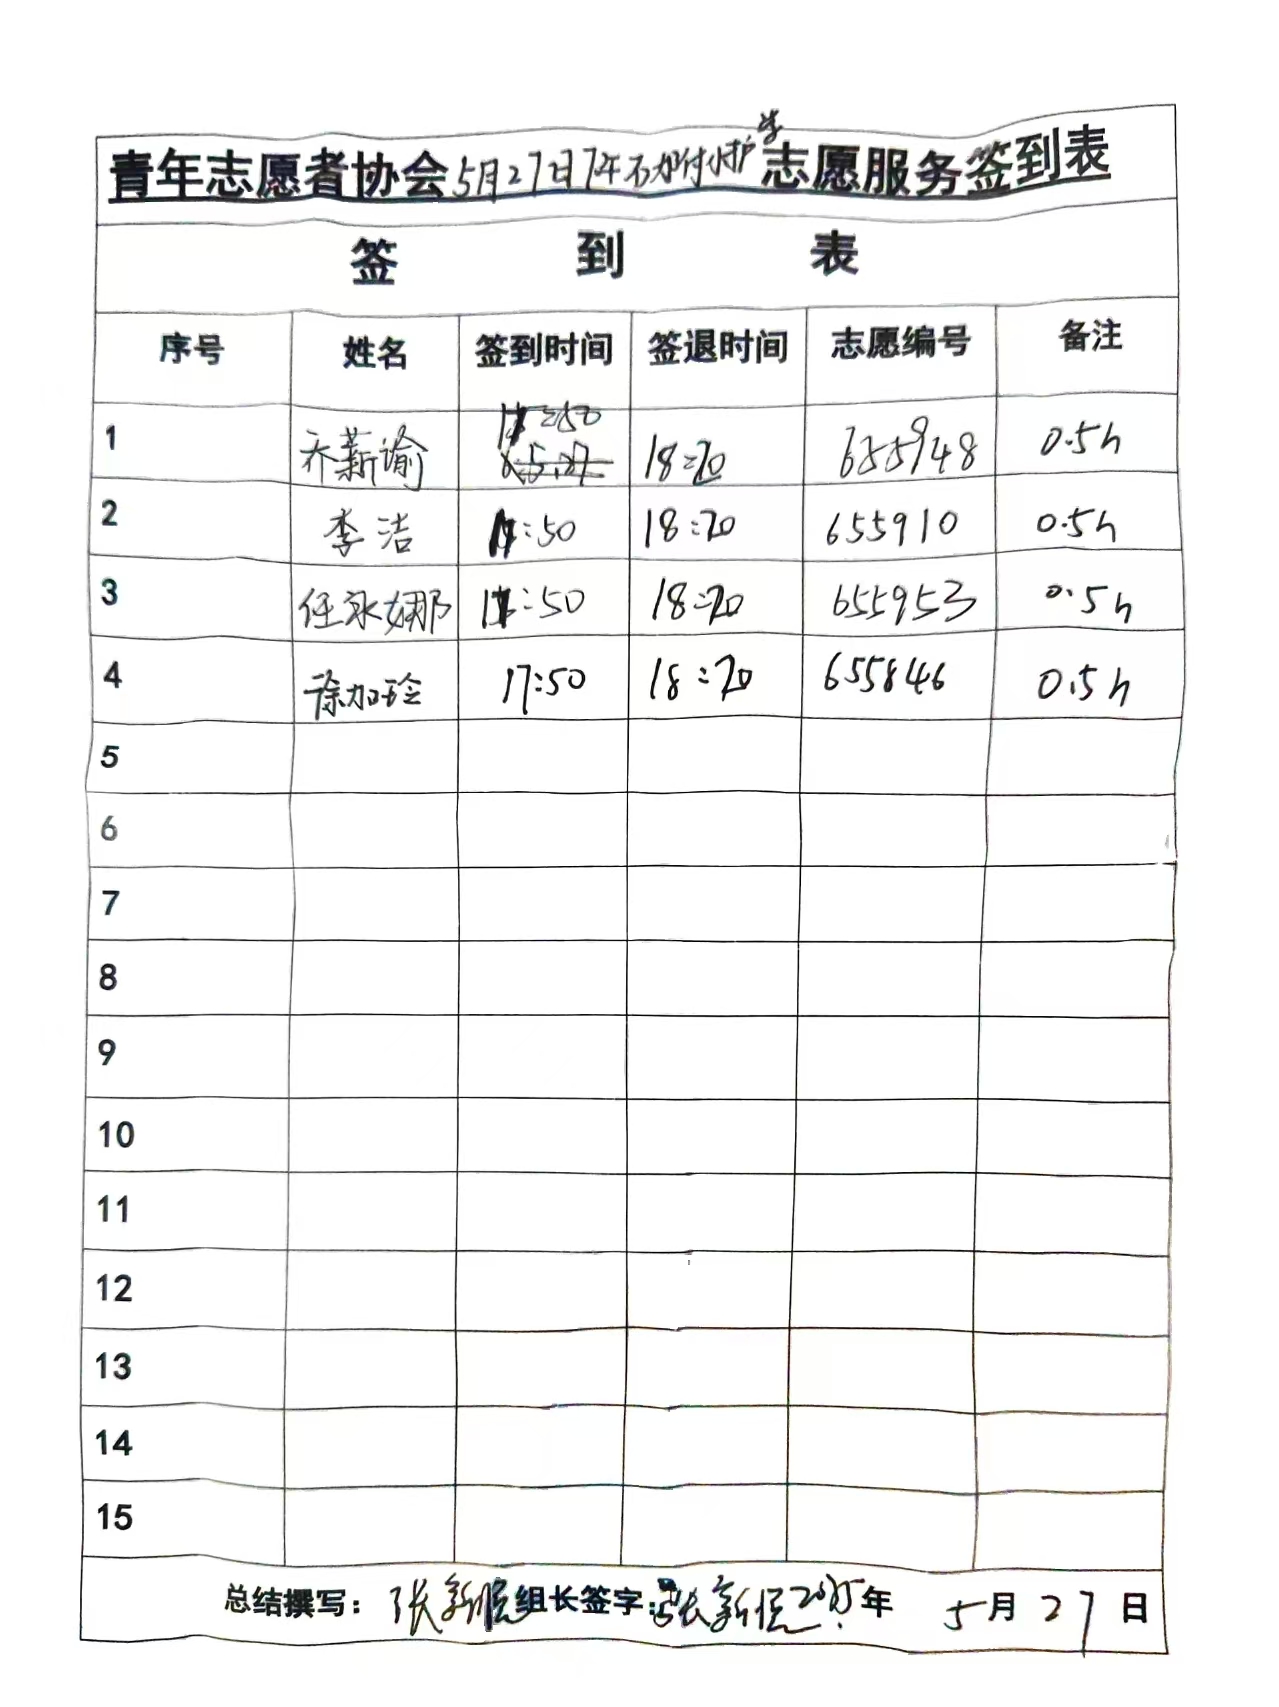 青年志愿者协会5月27日下午石加付小护学志愿服务签到表
签到表
序号 姓名 签到时间 签退时间 志愿编号 备注
1 乔薪谕 17:50 18:20 655948 0.5h
2 李洁 17:50 18:20 655910 0.5h
3 任永娜 17:50 18:20 655953 0.5h
4 徐加玲 17:50 18:20 655846 0.5h
5
6
7
8
9
10
11
12
13
14
15
总结撰写：张新 组长签字：张新 2025年 5月27日